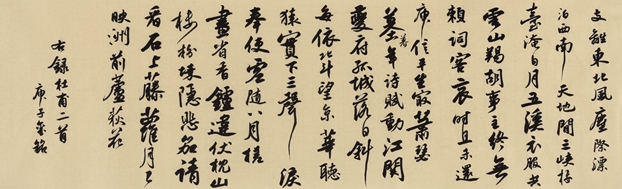 支離東北風塵際漂
泊西南天地間三峽樓
臺淹日月五溪衣服共
雲山羯胡事主終無
賴詞客哀時且未還
庾信平生最蕭瑟
暮年詩賦動江關
夔府孤城落日斜
每依北斗望京華聽
猿實下三聲淚
奉使虛隨八月槎
畫省香爐違伏枕山
樓粉堞隱悲笳請
看石上藤蘿月已
映洲前蘆荻花
右録杜甫二首
庚子